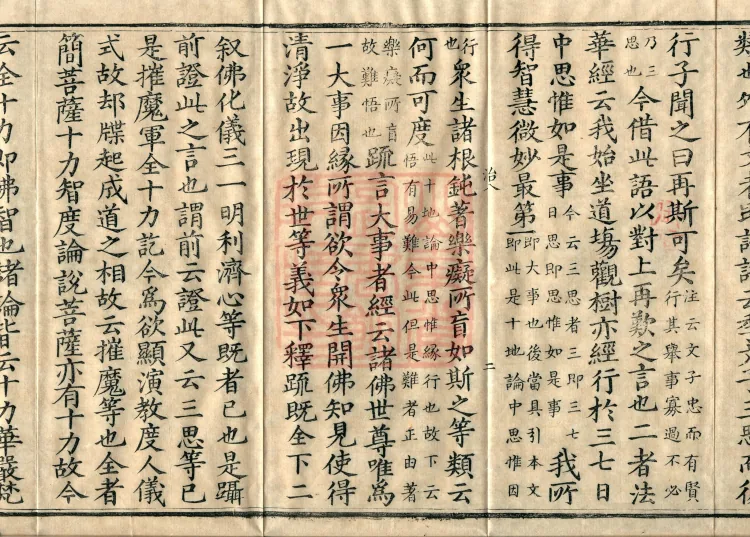 行子聞之曰再斯可矣注云文子忠而有賢行其舉事寡過不必
乃三思也今借此語以對上再歎之言也二者法
華經云我始坐道場觀樹亦經行於三七日
中思惟如是事今云三思者三即三七日思即思惟如是事我所
得智慧微妙最第一即大事也後當具引本文即此是十地論中思惟因
治八 二
行也眾生諸根鈍著樂癡所盲如斯之等類云
何而可度此十地論中思惟緣行也故下云悟有易難今此但是難者正由著
樂癡所盲故難悟也疏言大事者經云諸佛世尊唯爲
一大事因緣所謂欲令眾生開佛知見使得
清淨故出現於世等義如下釋疏既全下二
叙佛化儀三一明利濟心等既者已也是躡
前證此之言也謂前云證此又云三思等已
是摧魔軍全十力訖今爲欲顯演教度人儀
式故却牒起成道之相故云摧魔等也全者
簡菩薩十力智度論說菩薩亦有十力故今
云全十力即佛智也諸論皆云十力華嚴梵